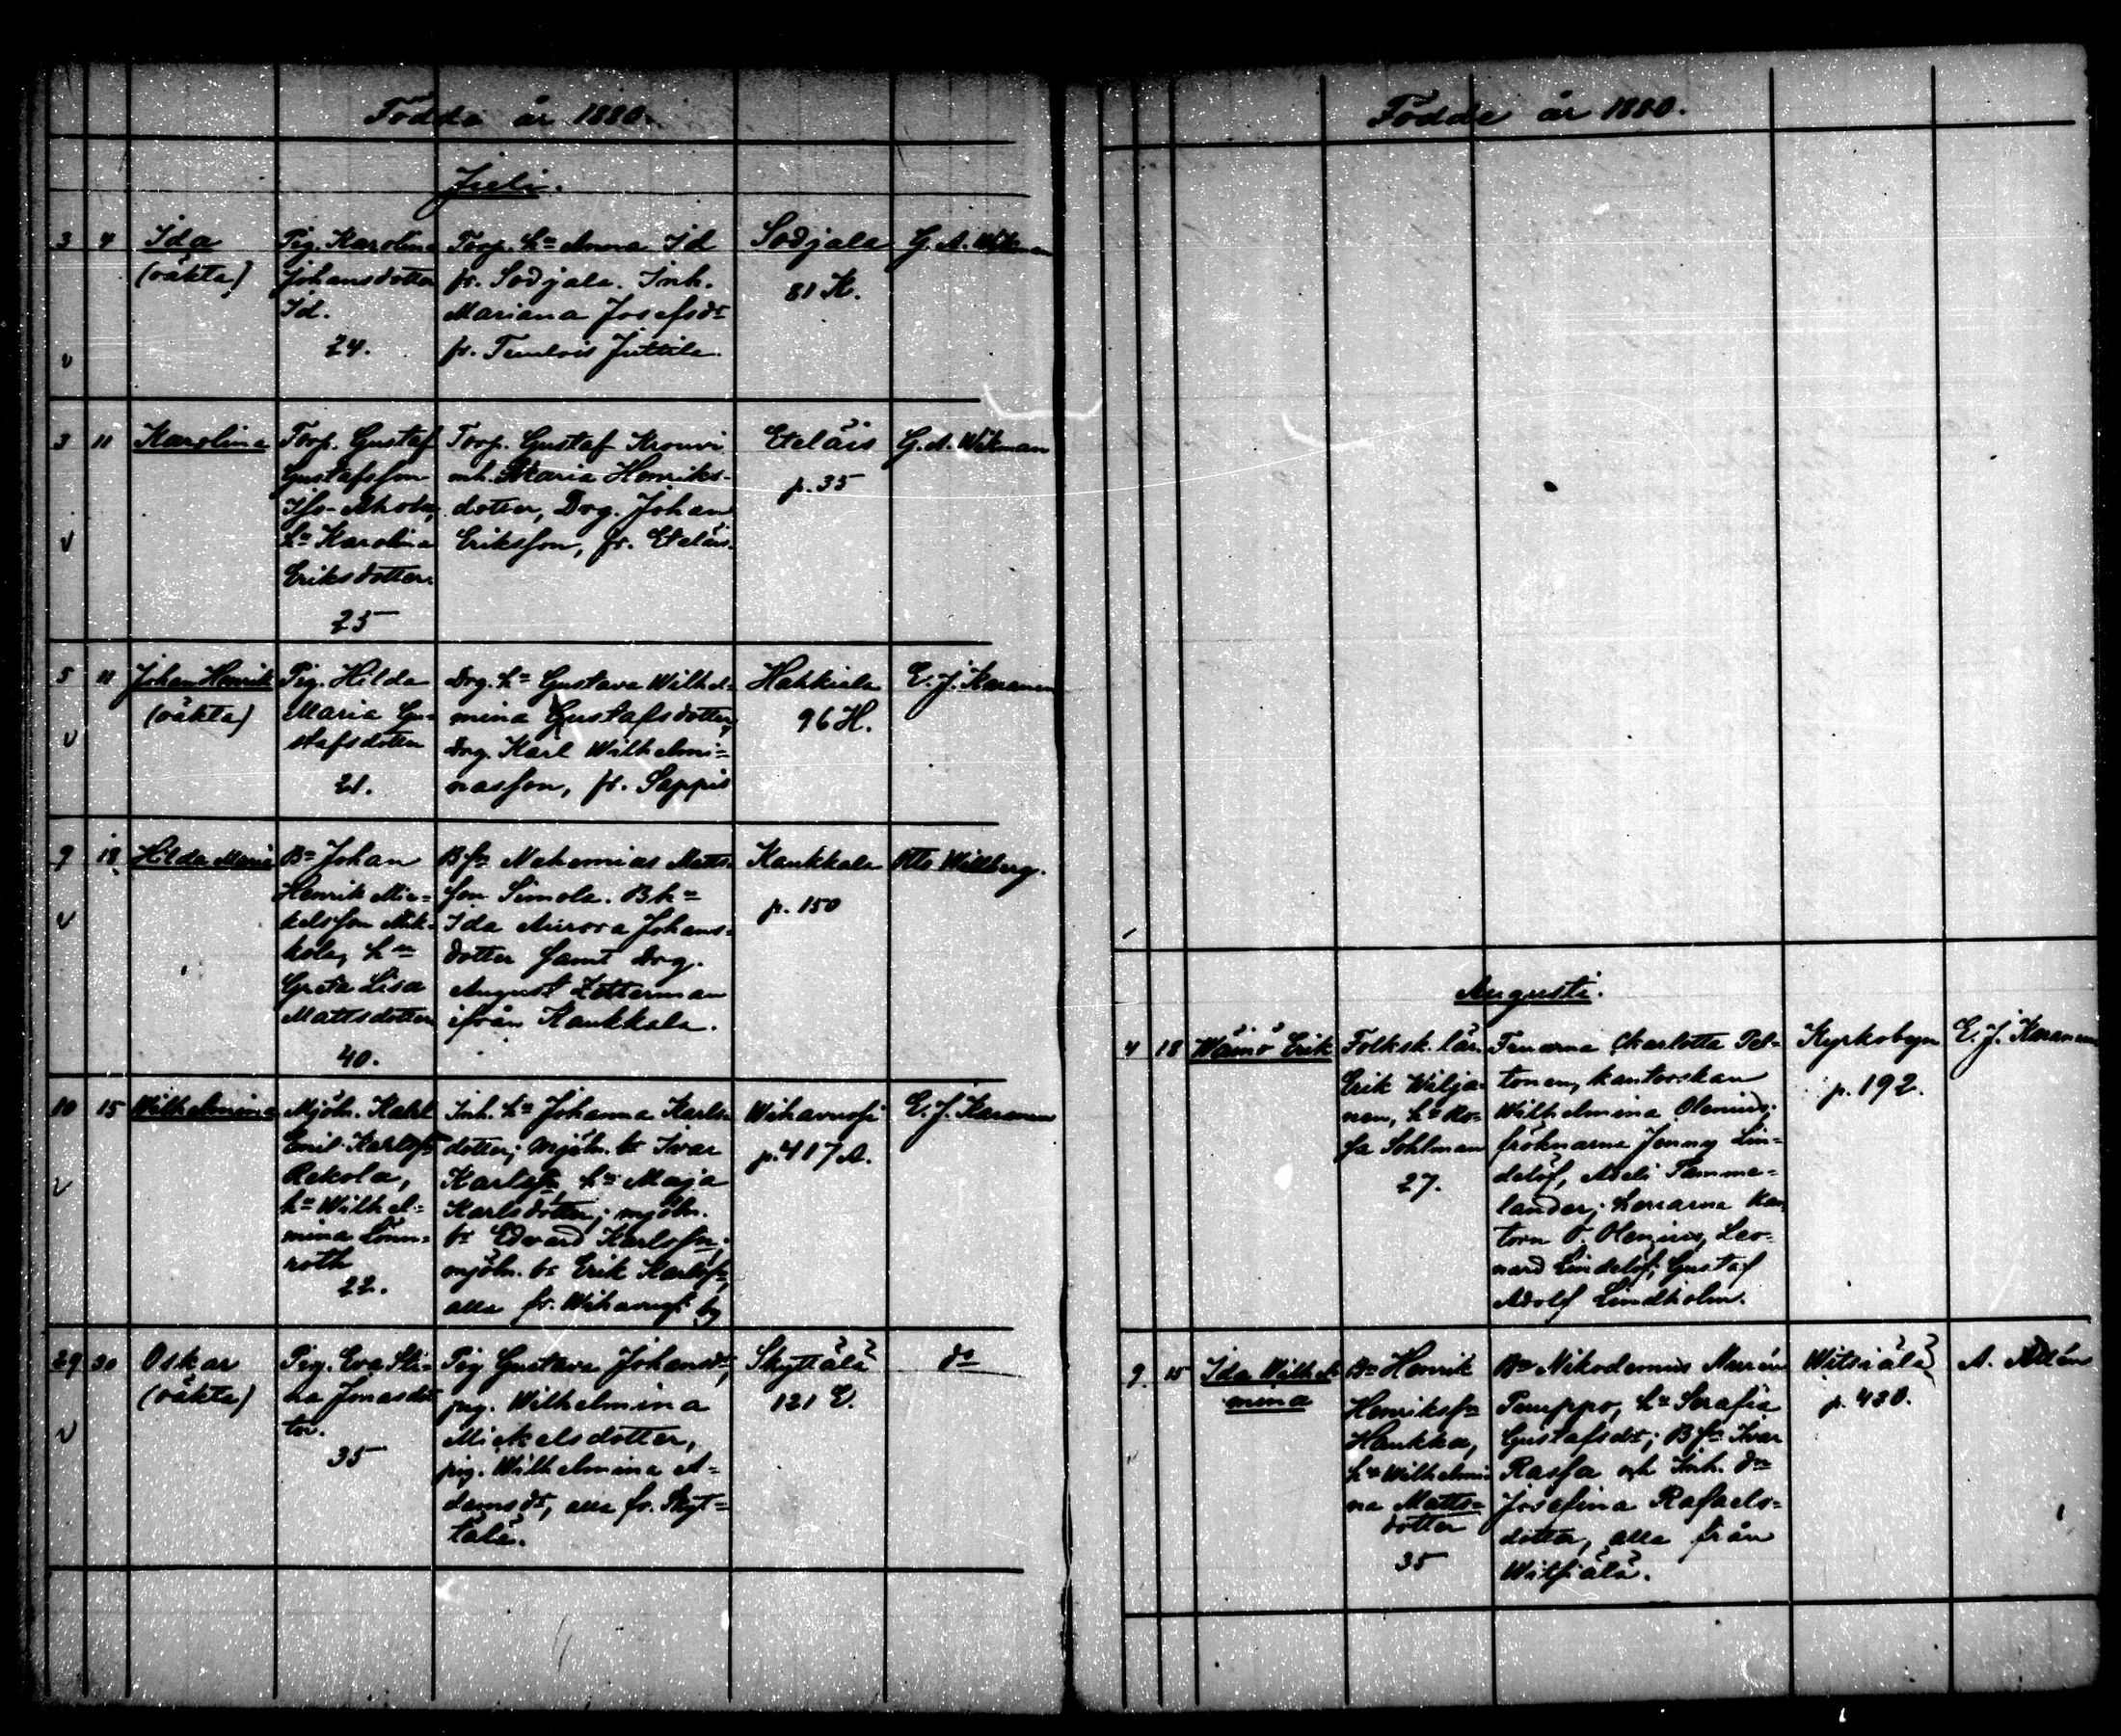 Födde år 1880.
Juli.
3 4 Ida
(oäkta)
Pig. Karolina
Johansdotter
Id.
24.
Torp. hu Anna Id
fr. Sodjala. Inh.
Mariana Josefsdr
fr. Tuulois Juttila.
Sodjala
81 K.
G. A. Wikman
3 11 Karolina
Torp. Gustaf
Gustafsson
hu Karolina
Eriksdotter.
25
Torp. Gustaf Kronvi
inh. Maria Henriks-
dotter, Drg. Johan
Eriksson, fr. Eteläis.
Eteläis
p. 35
G. A. Wikman
5 11 Johan Henrik
(oäkta)
Pig. Hilda
Maria Gu-
stafsdotter
21.
Drg. hu Gustava Wilhel-
mina Gustafsdotter,
Drg. Karl Wilhelmi-
nasson, fr. Sappis
Hahkiala
96 H.
E. J. Karanen
9 18 Hilda Maria
Bn Johan
Henrik Mic-
kelsson Mik-
kola, hu
Greta Lisa
Mattsdotter
40.
Bsn Nehemias Matts-
son Simola. Bhu
Ida Aurora Johans-
dotter samt Drg.
August Zetterman
ifrån Kaukkala.
Kaukkala
p. 150
Otto Willberg.
10 15 Wilhelmina
Mjöln. Karl
Emil Karlss.
Rekola,
hu Wilhel-
mina Lönn-
roth
22.
Inh. hu Johanna Karls-
dotter; mjöln. br Ivar
Karlssn, hu Maja
Karlsdotter; mjöln.
br Edvard Karlssn;
mjöln. br Erik Karlssn,
alla fr. Wihavuosi by
Wihavuosi
p. 417 A.
E. J. Karanen
29 30 Oskar
(oäkta)
Pig. Eva Sti-
na Jonasdot
ter.
35
Pig Gustava Johansdr,
pig. Wilhelmina
Mickelsdotter,
pig. Wilhelmina A-
damsdr, alla fr. Skyt-
tälä.
Skyttälä
121 E.
do
Födde år 1880.
Augusti.
4 18 Wäinö Erik
Folksk. lär.
Erik Wilja-
nen, hu Ro-
sa Sohlman
27.
Fruarna Charlotta Pel-
tonen, kantorskan
Wilhelmina Olenius;
fröknarna Jenny Lin-
delöf, Adeli Tamme-
lander; herrarna Kan
torn O. Olenius, Leo-
nard Lindelöf, Gustaf
Adolf Lindholm.
Kyrkobyn
p. 192.
E. J. Karanen
9 15 Ida Wilhel-
mina
Bn Henrik
Henrikssn
Haukka,
hu Wilhelmi
na Matts-
dotter
35
Bn Nikodemus Nurén
Pumppo, hu Serafia
Gustafsdr; Bsn Ivar
Rassa och Inh. dn
Josefina Rafaels-
dotter, alla från
Witsiälä.
Witsiälä
p. 430.
A. Allén